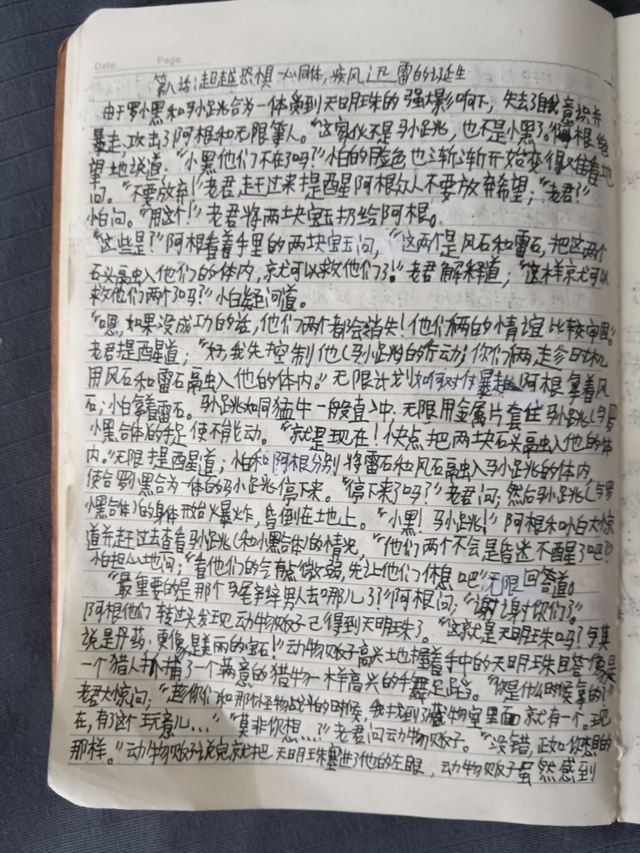 Date.      Page.
第八话:超越恐惧 心同体,疾风迅雷的诞生
由于罗小黑和马小跳合为一体受到天明珠的强大影响下,失去了自我意识并
暴走,攻击了阿根和无限等人。“这家伙不是马小跳,也不是小黑了。”阿根绝
望地说道:“小黑他们不在了吗?”小白的脸色也渐渐开始变得难看地
问。“不要放弃!”老君赶过来提醒阿根众人不要放弃希望,“老君?”
小白问。“用这个!”老君将两块宝玉扔给阿根。
“这些是?”阿根看着手里的两块宝玉问,“这两个是风石和雷石,把这两个
石头融入他们的体内,就可以救他们了!”老君解释道;“这样就可以
救他们两个了吗?”小白疑问道。
“嗯,如果没成功的话,他们两个都会消失!他们俩的情谊比较牢固。”
老君提醒道;“好,我先控制他(马小跳)的行动,你们俩走参时机
用风石和雷石融入他的体内。”无限计划如何对付暴走,阿根拿着风
石,小白拿着雷石。马小跳如同猛牛一般直冲,无限用金属片套住马小跳(与罗
小黑合体)的手足使不能动。“就是现在!快点把两块石头融入他的体
内。”无限提醒道;小白和阿根分别将雷石和风石融入马小跳的体内,
使合罗小黑合为一体的马小跳停下来。“停下来了吗?”老君问;然后马小跳(与罗
小黑合体)的身体开始爆炸,昏倒在地上。“小黑!马小跳!”阿根和小白大惊
道并赶过去查看马小跳(和小黑合体)的情况,“他们两个不会是昏迷不醒了吧?”
小白担心地问;“看他们的气有点微弱,先让他们休息吧”无限回答道。
“最重要的是那个 男人去哪儿了?”阿根问;“谢谢你们了。”
阿根他们转过头发现动物贩子已得到天明珠了。“这就是天明珠吗?与其
说是丹药,更像是美丽的宝石!”动物贩子高兴地握着手中的天明珠回答,像是
一个猎人捕捉了一个满意的猎物一样高兴的手舞足蹈。“你是什么时候拿的?”
老君大惊问;“趁你们和那个怪物战斗的时候,我找到了藏物室里面就有一个。现
在,有了这个玩意儿...”“莫非你想...?”老君问动物贩子。“没错,正如你想的
那样。”动物贩子说完就把天明珠塞进了他的左眼,动物贩子虽然感到